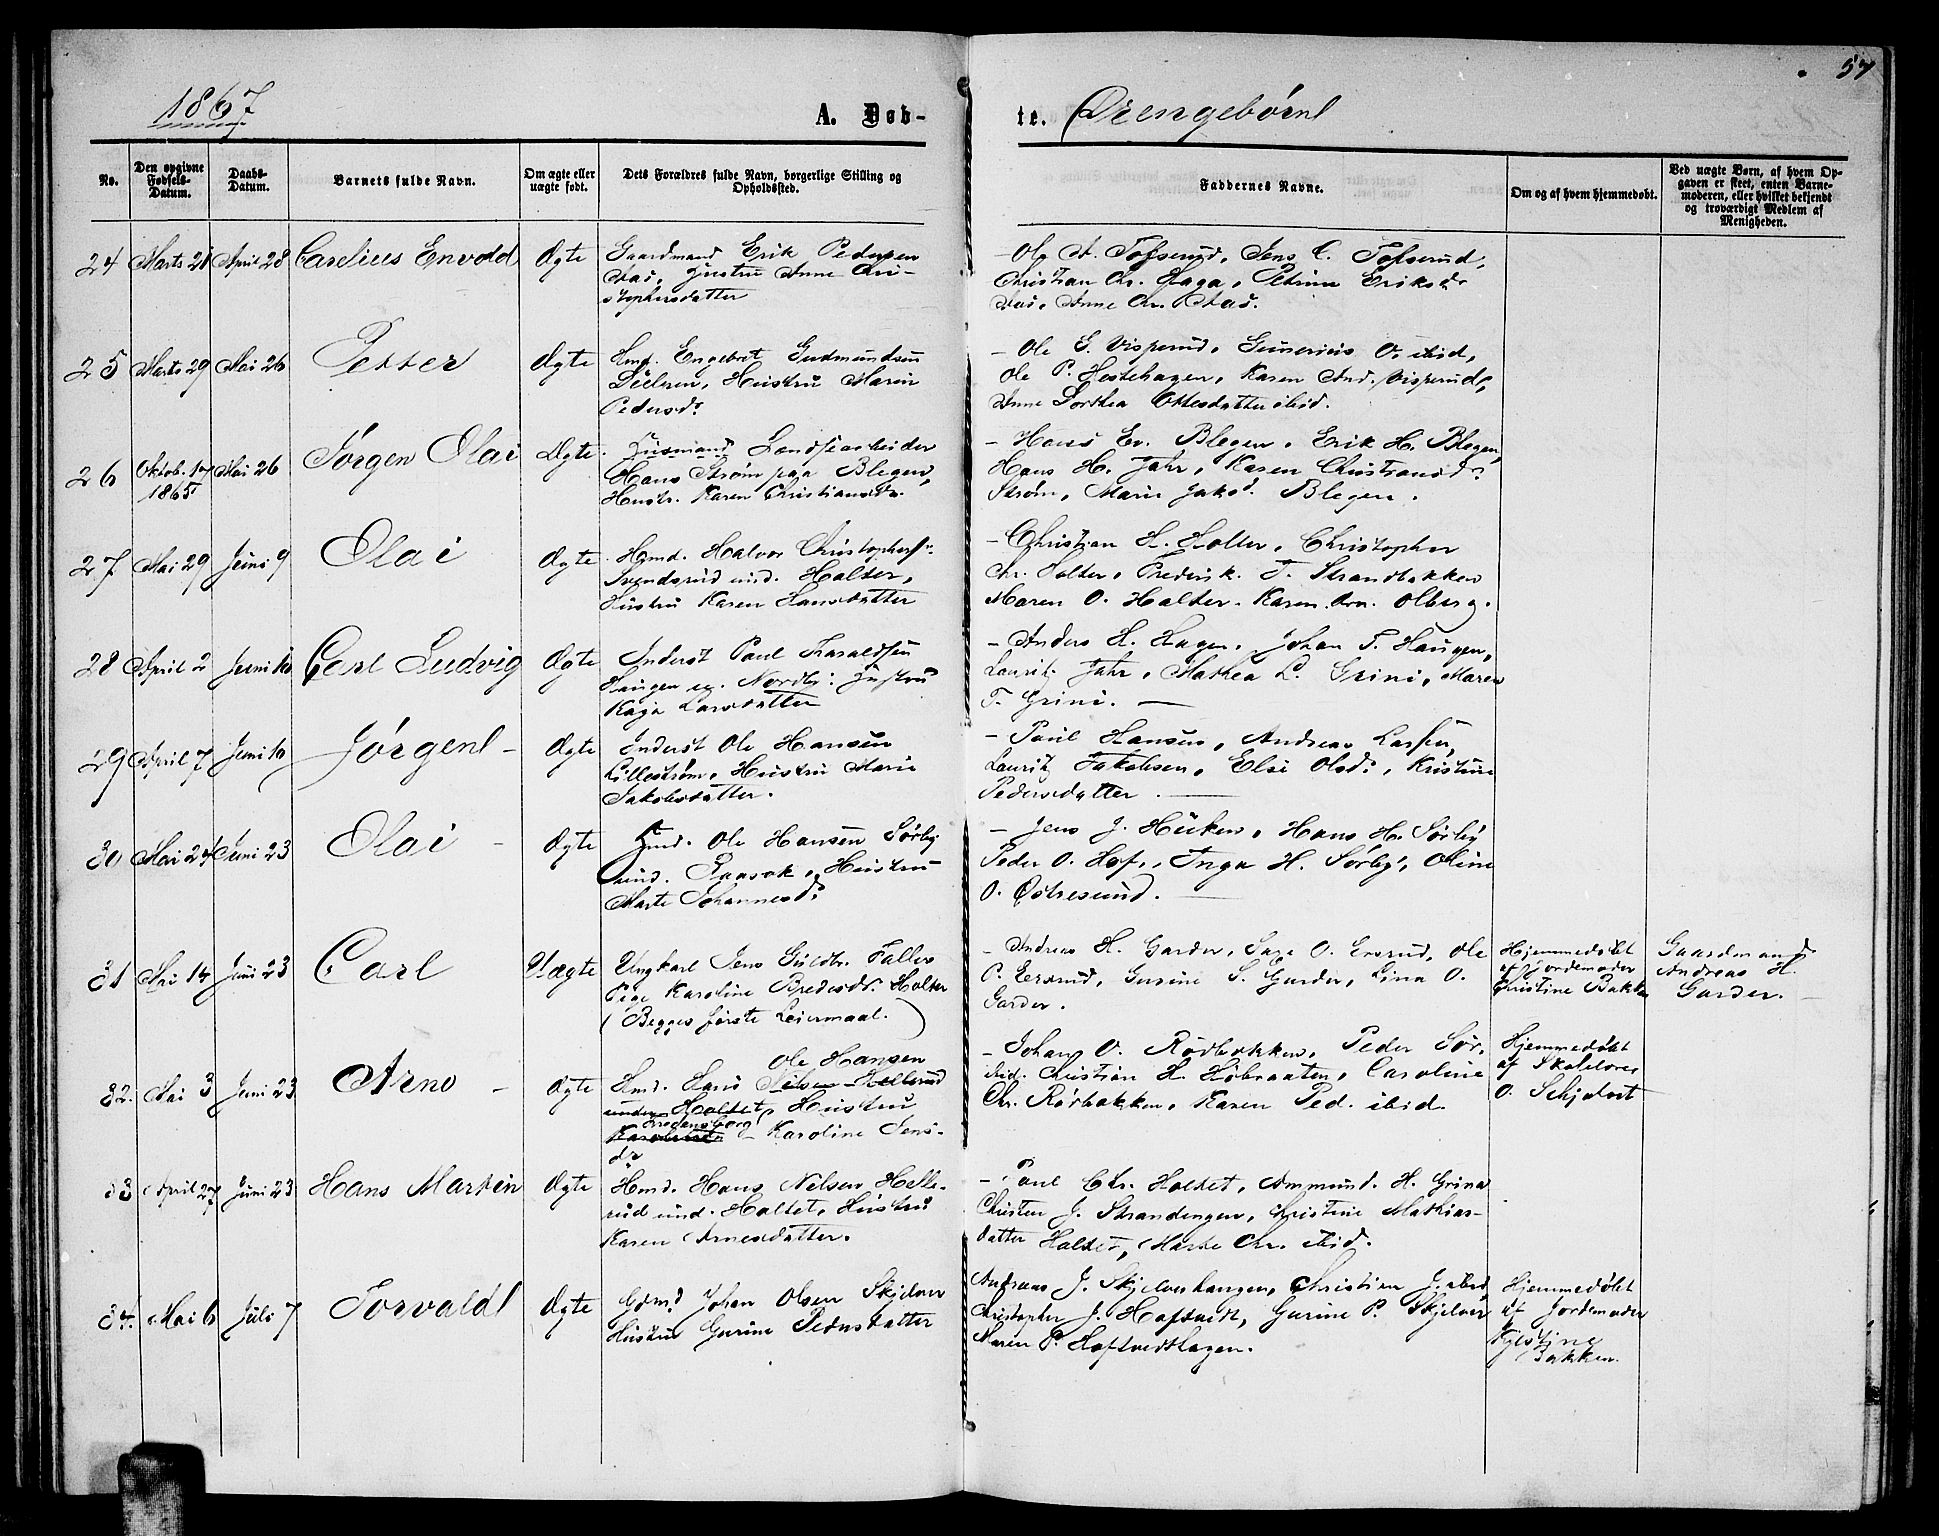 57
1867
A. Døb-
te. Drengebörn
No.
Den opgivne Fødsels-Datum.
Daabs-Datum.
Barnets fulde Navn.
Om ægte eller uægte født.
Dets Forældres fulde Navn, borgerlige Stilling og Opholdssted.
Faddernes Navne.
Om og af hvem hjemmedøbt.
Ved uægte Børn, af hvem Opgaven er skeet, enten Barnemoderen, eller hvilket bekjendt og troværdigt Medlem af Menigheden.
24 Marts 21 April 28 Carelius Envold Ægte
Gaardmand Erik Pedersen
Aas, Hustru Anne Chri-
stophersdatter
- Ole A. Tofserud, Jens C. Tofserud,
Christian Chr. Haga, Petrine Eriksd.
Aas, Anne Chr. Aas.
25 Marts 29 Mai 26 Petter Ægte
Hmd. Engebret Gudmundsen
Hustru Marin
Pedersd.
- Ole G. Visperud, O. ibid,
Ole P. Hestehagen, Karen And. Visperud,
Anne Dorthea Ottesdatter ibid.
26 Oktob. 17 1865 Mai 26 Jørgen Olai Ægte
Husmand Landsearbeider
Hans Strøm paa Blegen,
Hustr. Karen Christiansdr.
- Hans Er. Blegen, Erik H. Blegen,
Hans H. Jahr, Karen Christiansd.
Strøm, Marie Jaksd. Blegen.
27 Mai 29 Juni 9 Olai Ægte
Hmd. Halvor Christophers.
Svendsrud und. Holter,
Hustru Karen Hansdatter
- Christian H. Holter, Christopher
Chr. Holter, Frederik T. Strandbakken
Maren O. Holter, Karen Olberg.
28 April 2 Juni 10 Carl Ludvig Ægte
Inderst Paul Haraldsen
Haugen eg. Nordby: Hustru
Kaja Larsdatter
- Anders H. Hagen, Johan T. Haugen,
Lauritz Jahr, Mathea L. Grini, Maren
T. Grini.
29 April 7 Juni 10 Jørgen - Ægte
Inderst Ole Hansen
Lillestrøm, Hustru Marie
Jakobsdatter.
- Paul Hansen, Andreas Larsen,
Lauritz Jakobsen, Elsi Olsd., Kristine
Pedersdatter.
30 Mai 24 Juni 23 Olai - Ægte
Hmd. Ole Hansen Sørby
und. Hustru
Marte Johannesd.
- Jens J. Hos H. Sørby
Peder O. Hof, Inga H. Sørby, Oline
O. Østresund.
31 Mai 14 Juni 23 Carl Uægte
Ungkarl Jens Guldbr. Faller
Pige Karoline Bredesdr. Holter
(Begges første Leiermaal.)
- Andreas H. Garder, O. Ersrud, Ole
P. Ersrud, Gurine S. Garder, Lina O.
Garder.
Hjemmedøbt
af Jordemoder
Christine Bakken
Gaardmand
Andreas H.
Garder.
32. Mai 3 Juni 23 Arno - Ægte
Ole Hansen
Hmd. Hans Nilsen Hellerud
under Holtet, Hustru
Fredensborg
Karoline Jens-
dr
- Johan O. Rødbakken, Peder Sør.
ibid. Christian H. Høbraaten, Caroline
Chr. Rørbakken, Karen Ped. ibid.
Hjemmedøbt
af Skolelærer
O. Schjatvet
33 April 27 Juni 23 Hans Martin Ægte
Hmd. Hans Nelsen Helle-
rud und. Holtet, Hustru
Karen Arnesdatter.
- Paul Chr. Holtet, Ammund. H. Grina
Christen J. Strandengen, Christine Mathias-
datter Holtet, Marte Chr. ibid.
34. Mai 6 Juli 7 Torvald Ægte
Gdmd Johan Olsen Skjelver
Hustru Gurine Pedersdatter
Andreas J. Skjelverhaugen, Christian J. ibid,
Christopher J. Hoftvedt, Gurine P. Skjelver
Maren P. Hoftvedthagen.
Hjemmedøbt
af Jordemoder
Kjestine
Bakken.